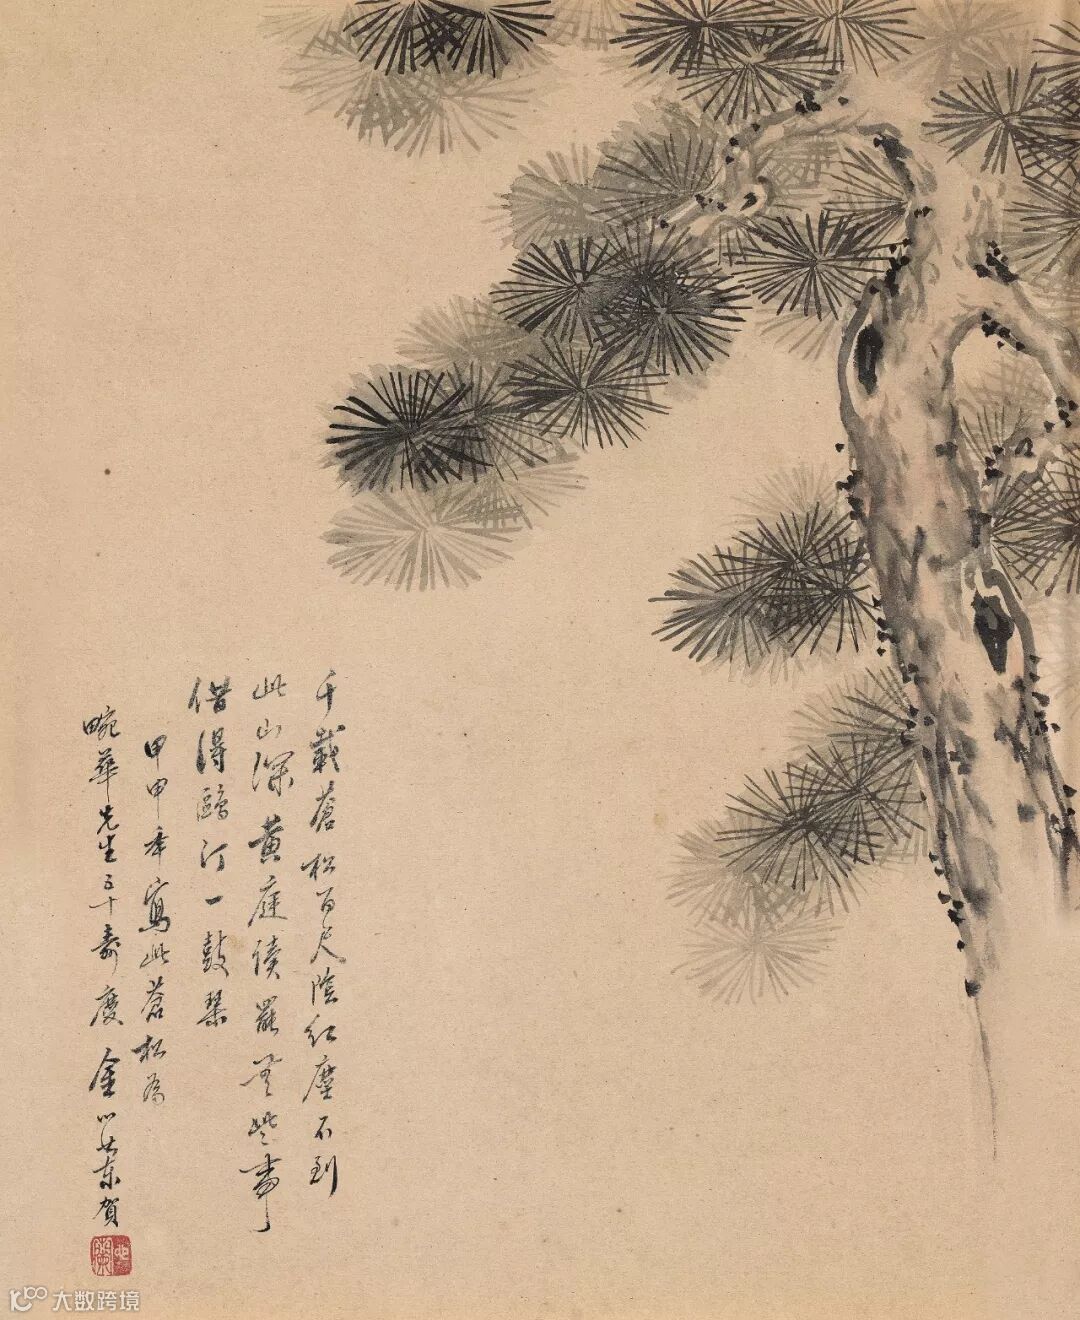 千載蒼松百尺陰紅塵不到
此山深黄庭讀罷无些事
借得鷗汀一鼓琴
甲申年寫此蒼松為
畹華先生五十壽慶金心蘭賀
大数跨境